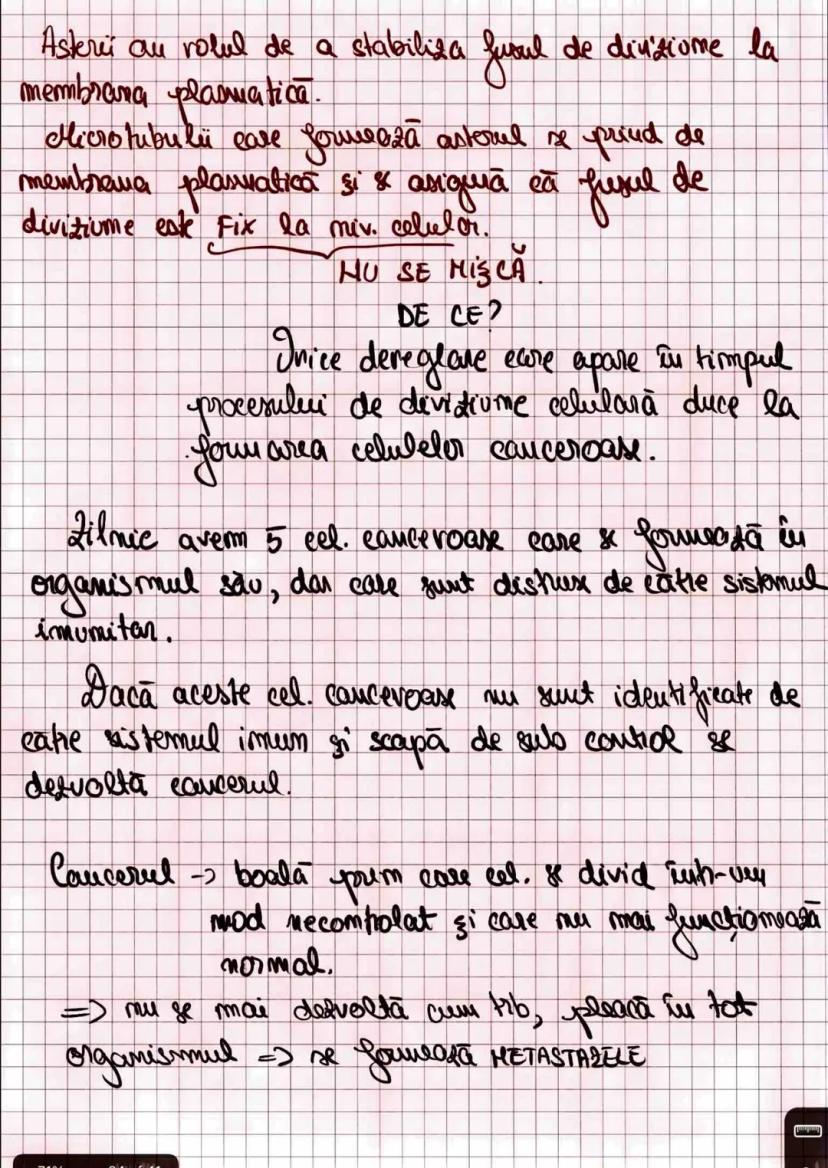 Asterii au rolul de a stabiliza fusul de diviziune la
membrana plasmatică.
Microtubulii care formează asterul se prind de
membrana plasmatică și se asigură că fusul de
diviziune este FIX la niv. celulor.
NU SE MIȘCĂ.
DE CE?
Orice dereglare care apare în timpul
procesului de diviziune celulară duce la
formarea celulelor canceroase.
Zilnic avem 5 cel. canceroase care se formează în
organismul său, dar care sunt distruse de către sistemul
imunitar.
Dacă aceste cel. canceroase nu sunt identificate de
către sistemul imun și scapă de sub control se
dezvoltă cancerul.
Cancerul -> boală prin care cel. se divid într-un
mod necontrolat și care nu mai funcționează
normal.
=> nu se mai dezvoltă cum trb, pleacă în tot
organismul => se formează METASTAZELE